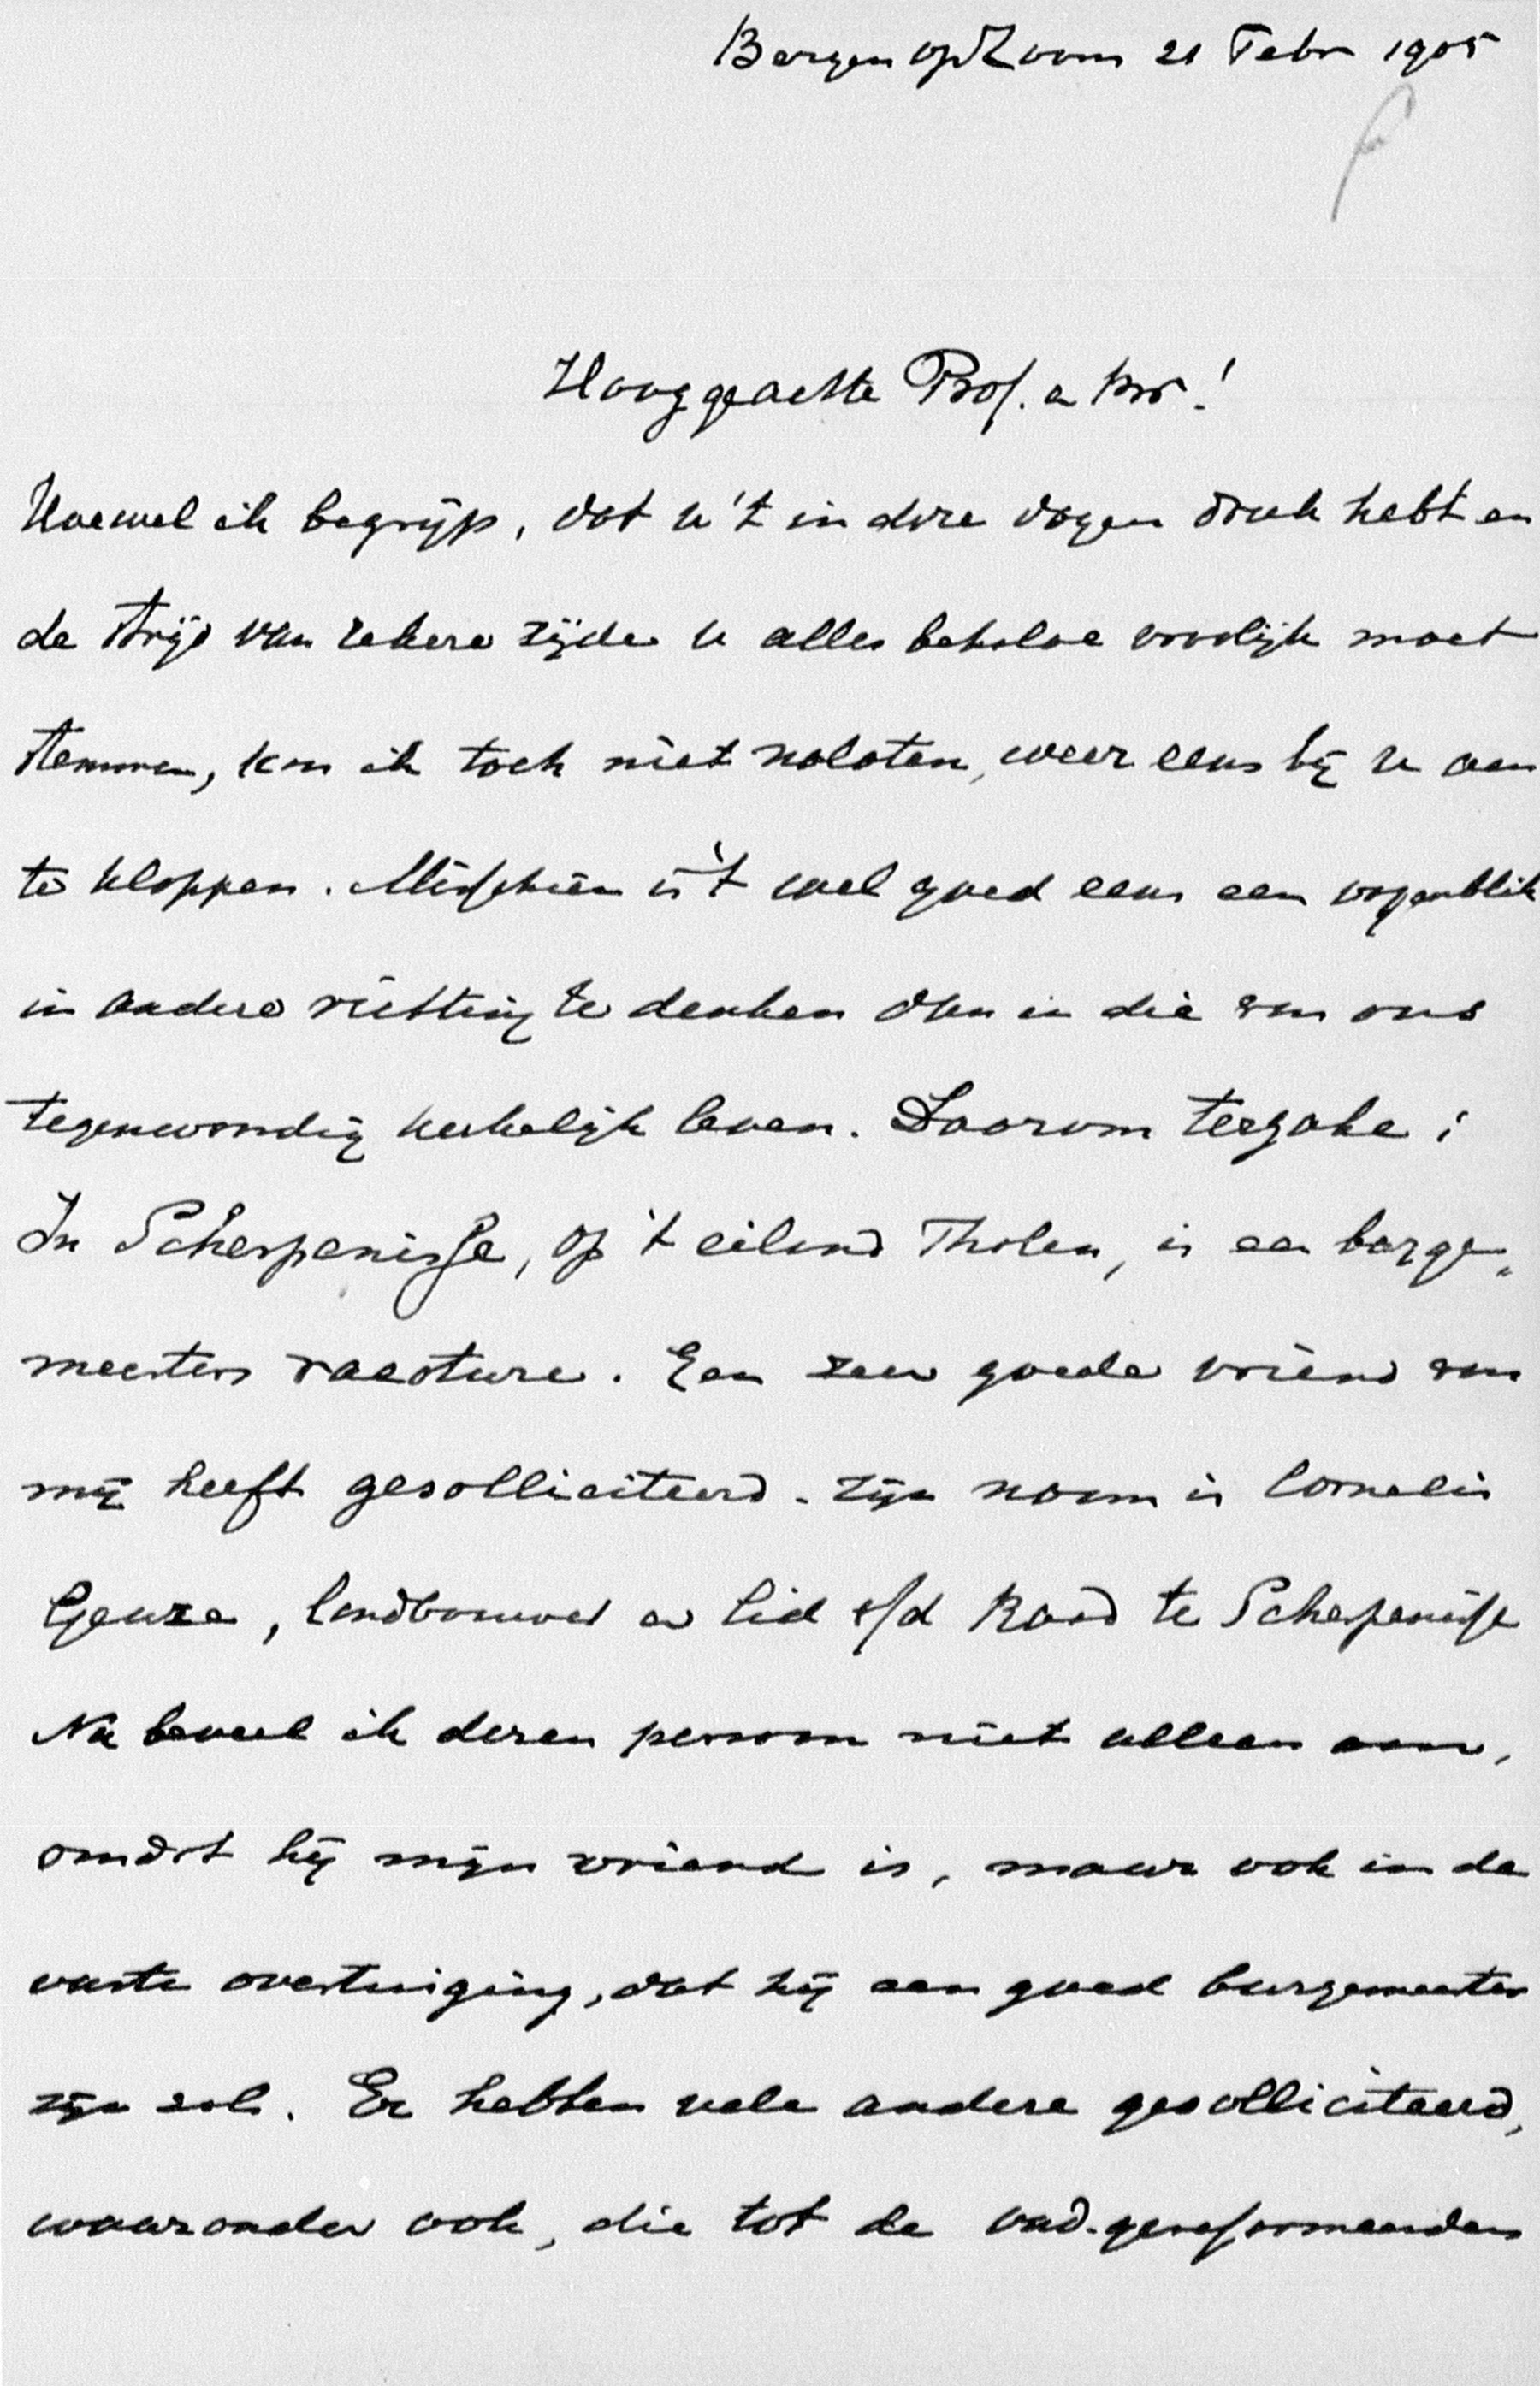 Bergen op Zoom 21 Febr 1905
Hooggeachte Prof. en Br!
Hoewel ik begrijp, dat u 't in deze dagen druk hebt en
de strijd van zekere zijde u alles behalve vroolijk moet
stemmen, kan ik toch niet nalaten, weer eens bij u aan
te kloppen. Misschien is 't wel goed eens een oogenblik
in andere richting te denken dan in die van ons
tegenwoordig kerkelijk leven. Daarom terzake:
In Scherpenisse, op 't eiland Tholen, is een borge-
meesters vacature. Een zeer goede vriend van
mij heeft gesolliciteerd. Zijn naam is Cornelis
Geuze, landbouwer en lid v/d Raad te Scherpenisse
Nu beveel ik dezen persoon niet alleen aan,
omdat hij mijn vriend is, maar ook in de
vaste overtuiging, dat hij een goed burgemeester
zijn zal. Er hebben vele andere gesolliciteerd,
waaronder ook, die tot de oud-gereformeerden